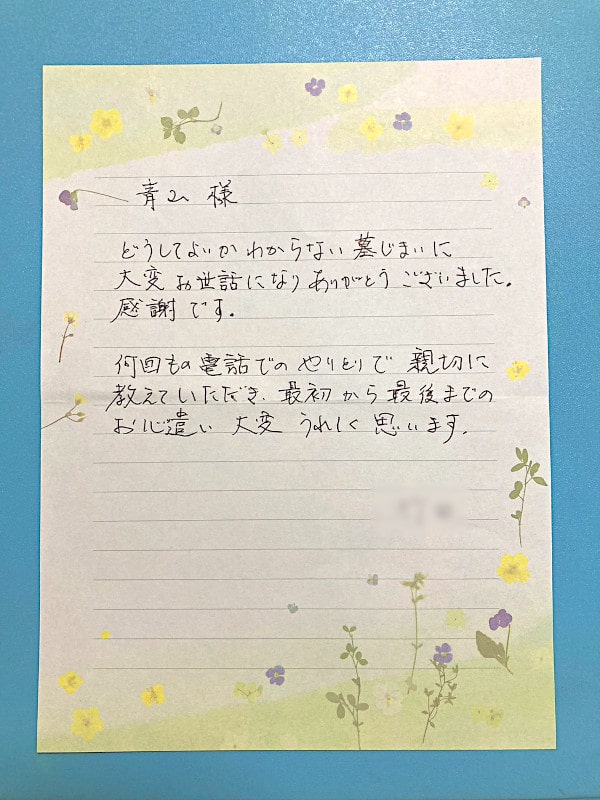 青山 様
どうしてよいか わからない 墓じまいに
大変お世話になり ありがとう ございました。
感謝です。
何回もの電話での やりとりで 親切に
教えていただき、最初から最後までの
お心遣い 大変 うれしく 思います。